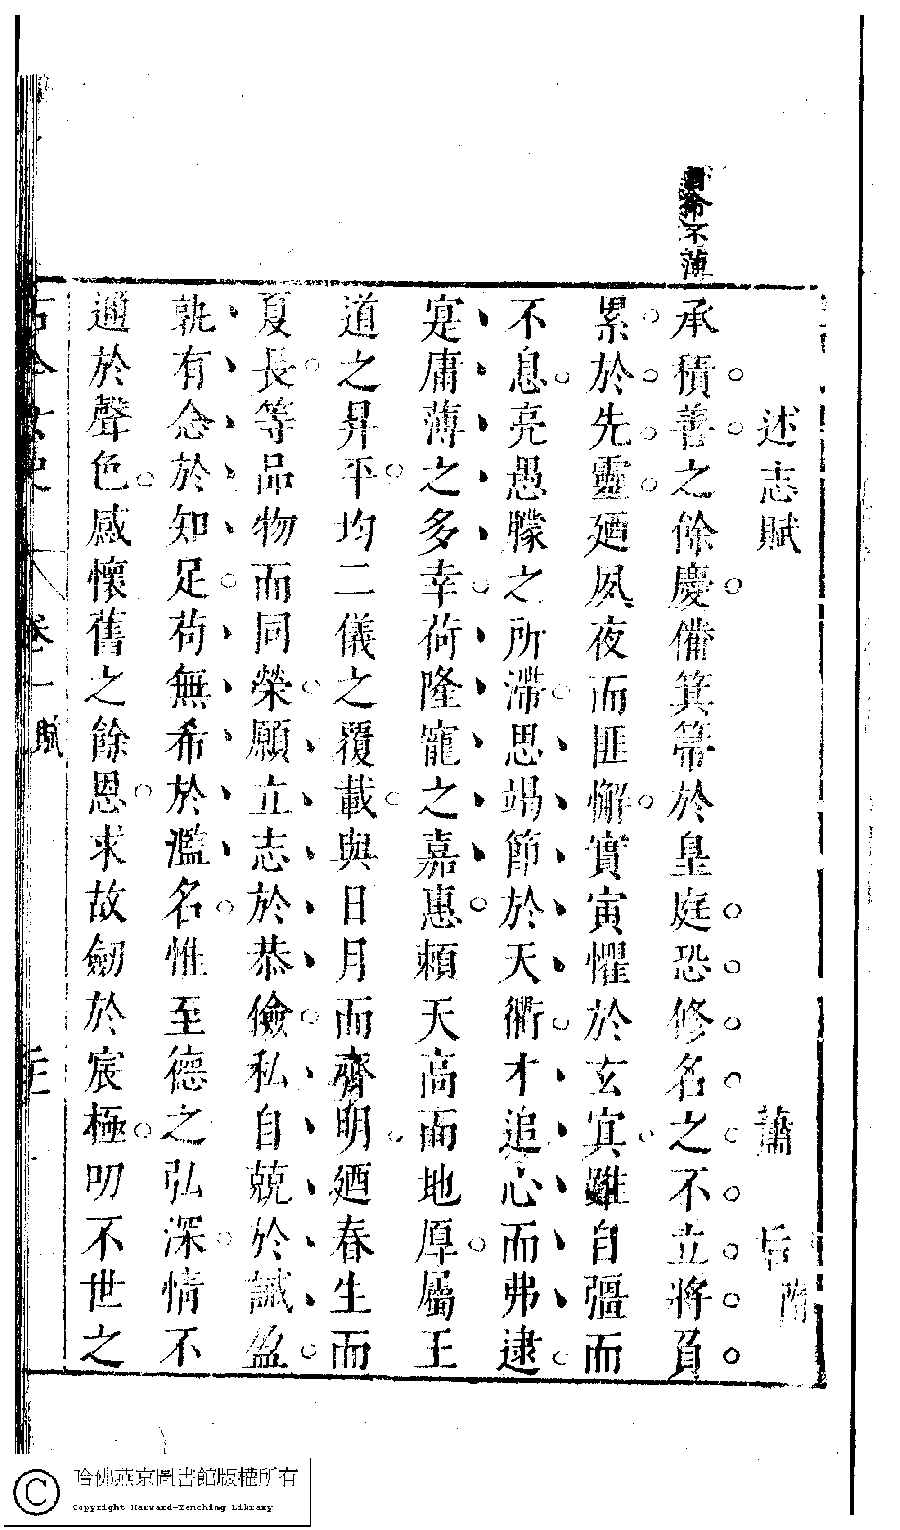 述志賦　蕭后隋
承積善之餘慶備箕箒於皇庭恐修名之不立將負
累於先靈廼夙夜而匪懈實寅懼於玄冥雖自彊而
不息亮愚朦之所滯思竭節於天衢才追心而弗逮
寔庸薄之多幸荷隆寵之嘉惠頼天高而地厚屬王
道之昇平均二儀之覆載與日月而齊明廼春生而
夏長等品物而同榮願立志於恭儉私自兢於誡盈
孰有念於知足苟無希於濫名惟至德之弘深情不
邇於聲色感懷舊之餘恩求故劒於宸極叨不世之
古今女史　卷一　賦
哈佛燕京圖書館版權所有
Copyright Harvard-Yenching Library